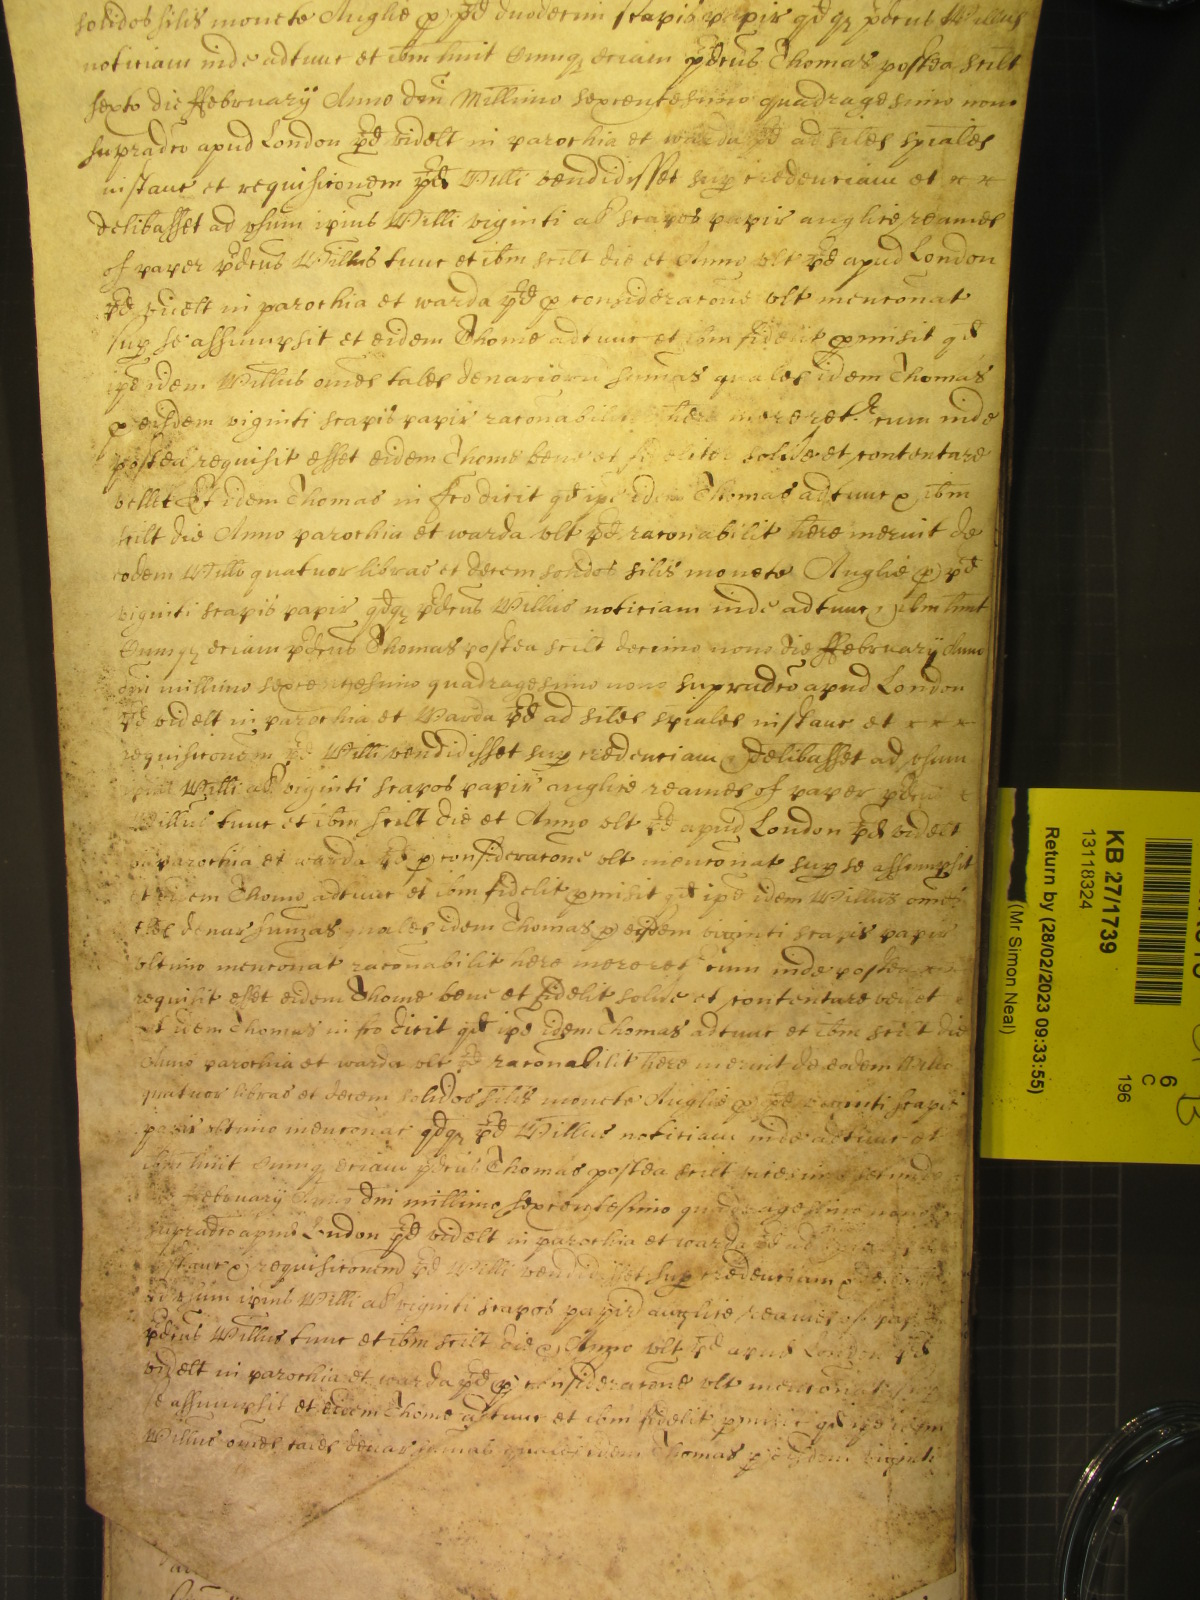 solidos silis monete Anglie p pd duodecim scapis papir qdqz pdcus Willus
noticiam inde adtunc et ibm huit Cumqz eciam pdcus Thomas postea scilt
sexto die ffebruarÿ Anno dni Millimo septentesimo quadragesimo nono
supradco apud London pd videlt in parochia et warda pd ad siles spiales
instanc et requisiconem pd Willi vendidisset sup credenciam et
delibasset ad usum ipius Willi viginti al scapos papir anglice reames
of paper pdcus Willus tunc et ibm scilt die et Anno ult pd apud London
pd videlt in parochia et warda pd p consideracone ult menconat
sup se assumpsit et eidem Thome adtunc et ibm fidelit pmisit qd
ipe idem Willus omes tales denarioru sumas quales idem Thomas
p eisdem viginti scapis papir raconabilit here mereret cum inde
postea requisit esset eidem Thome bene et fideliter solvere et contentare
vellet Et idem Thomas in fco dicit qd ipe idem Thomas adtunc & ibm
scilt die Anno parochia et warda ult pd raconabilit here meruit de
eodem Willo quatuor libras et decem solidos silis monete Anglie p pd
viginti scapis papir qdqz pdcus Willus noticiam inde adtunc & ibm huit
Cumqz eciam pdcus Thomas postea scilt decimo nono die ffebruarÿ Anno
dni millimo septentesimo quadragesimo nono supradco apud London
pd videlt in parochia et Warda pd ad siles spiales instanc et
requisiconem pd Willi vendidisset sup credenciam & delibasset ad usum
ipius Willi al viginti scapos papir anglice reames of paper pdcus
Willus tunc et ibm scilt die et Anno ult pd apud London pd videlt
in parochia et warda pd p consideracone ult menconat sup se assumpsit
et eidem Thome adtunc et ibm fidelit pmisit qd ipe idem Willus omes
tales denar sumas quales idem Thomas p eisdem viginti scapis papir
ultimo menconat raconabilit here mereret cum inde postea
requisit esset eidem Thome bene et fidelit solvere et contentare vellet
Et idem Thomas in fco dicit qd ipe idem Thomas adtunc et ibm scilt die
Anno parochia et warda ult pd raconabilit here meruit de eodem Willo
quatuor libras et decem solidos silis monete Anglie p pd viginti scapis
papir ultimo menconat qdqz pd Willus noticiam inde adtunc et
ibm huit Cumqz eciam pdcus Thomas postea scilt vicesimo secundo
die ffebruarÿ Anno dni millimo septentesimo quadragesimo nono
supradco apud London pd videlt in parochia et warda pd ad
instanc & requisiconem pd Willi vendidisset sup credenciam &
ad usum ipius Willi al viginti scapos papir anglice reames of paper
pdcus Willus tunc et ibm scilt die & Anno ult pd apud London pd
videlt in parochia et warda pd p consideracone ult menconat sup
se assumpsit et eidem Thome adtunc et ibm fidelit pmisit qd ipe idem
Willus omes tales denar sumas quales idem Thomas p eisdem viginti
KB 27/1739
13118324
Return by (28/02/2023 09:33:55)
(Mr Simon Neal)
6
C
196
B